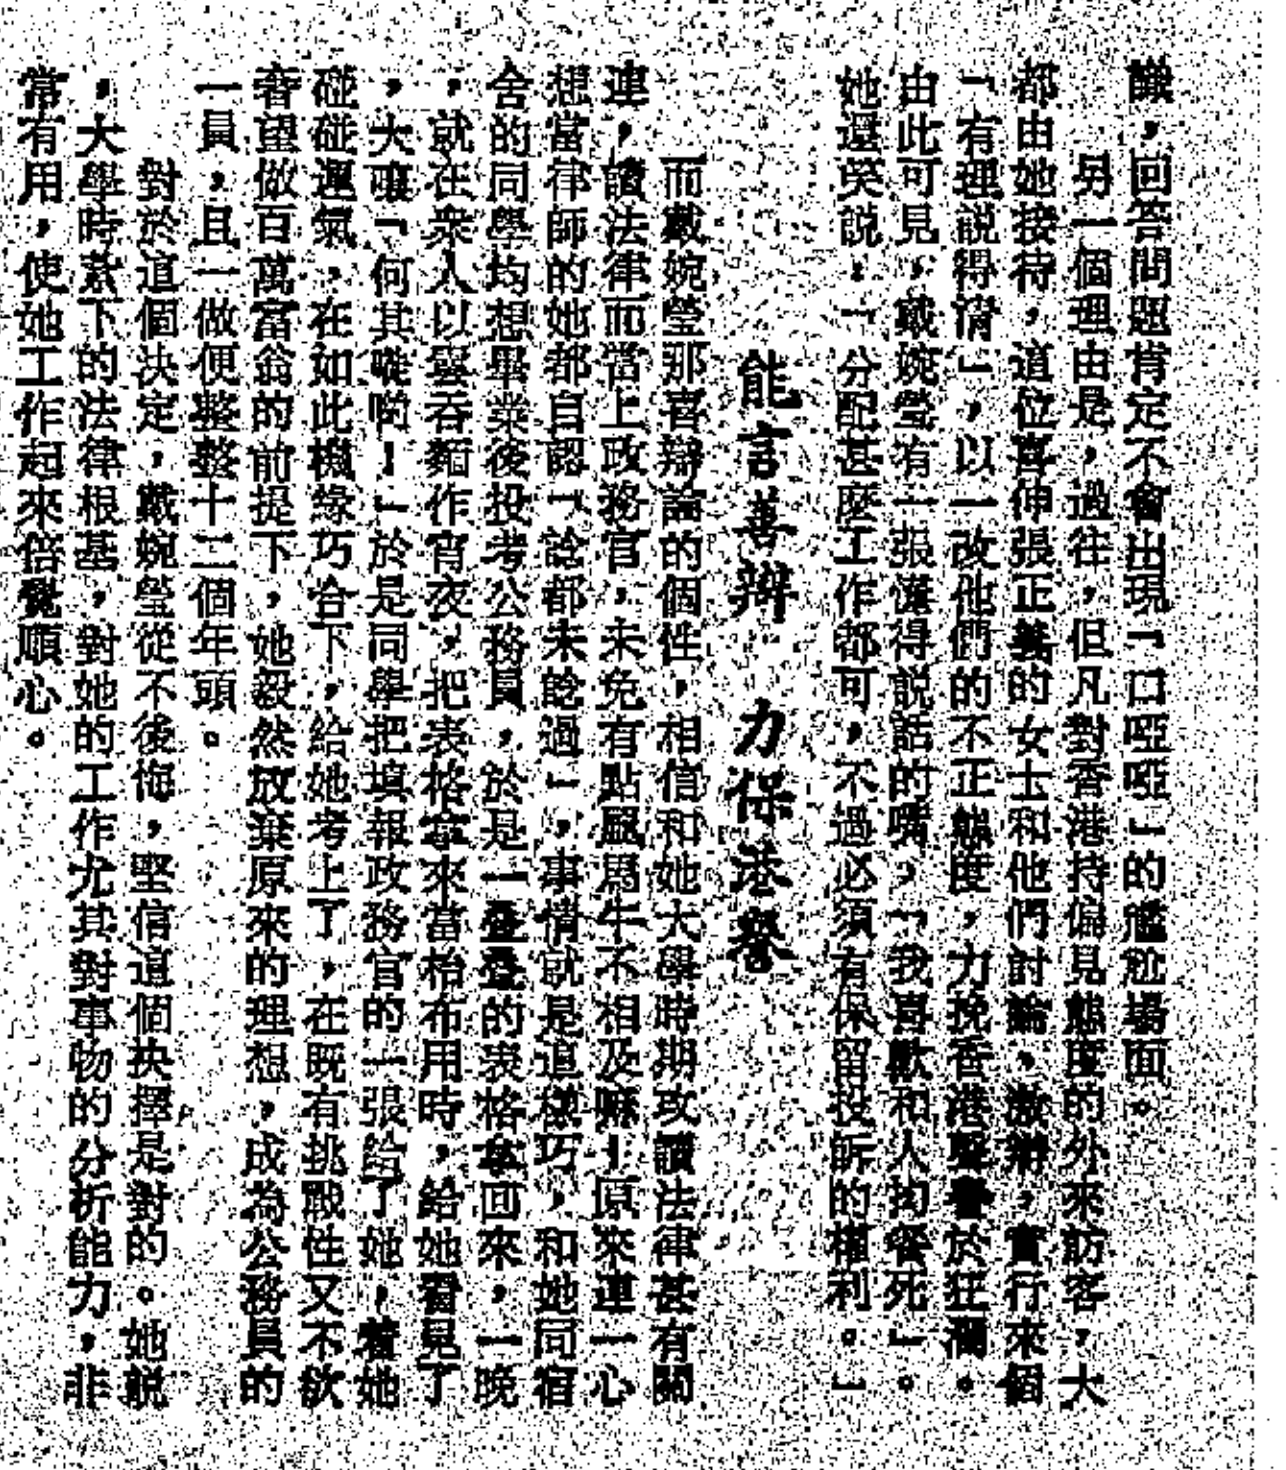 議，回答問題肯定不會出現「口啞啞」的尷尬場面。
另一個理由是，過往，但凡對香港持偏見態度的外來訪客，大
都由她接待，這位喜伸張正義的女士和他們討論、激辯，實行來個
「有理說得清」，以一改他們的不正態度，力挽香港聲譽於狂瀾。
由此可見，戴婉瑩有一張滿得說話的嘴，「我喜歡和人拗餐死」。
她還笑說：「分配甚麼工作都可，不過必須有保留投訴的權利。」
能言善辯 力保港譽
而戴婉瑩那喜辯論的個性，相信和她大學時期攻讀法律甚有關
連，讀法律而當上政務官，未免有點風馬牛不相及嘛！原來連一心
想當律師的她都自認「諗都未諗過」，事情就是這樣巧，和她同宿
舍的同學均想畢業後投考公務員，於是一疊疊的表格拿回來，一晚
，就在衆人以雲吞麵作宵夜，把表格拿來當枱布用時，給她看見了
，大嚷「何其嘥喲！」於是同學把填報政務官的一張給了她，着她
碰碰運氣，在如此機緣巧合下，給她考上了，在既有挑戰性又不欲
奢望做百萬富翁的前提下，她毅然放棄原來的理想，成為公務員的
一員，且一做便整整十二個年頭。
對於這個決定，戴婉瑩從不後悔，堅信這個抉擇是對的。她說
，大學時紮下的法律根基，對她的工作尤其對事物的分析能力，非
常有用，使她工作起來倍覺順心。